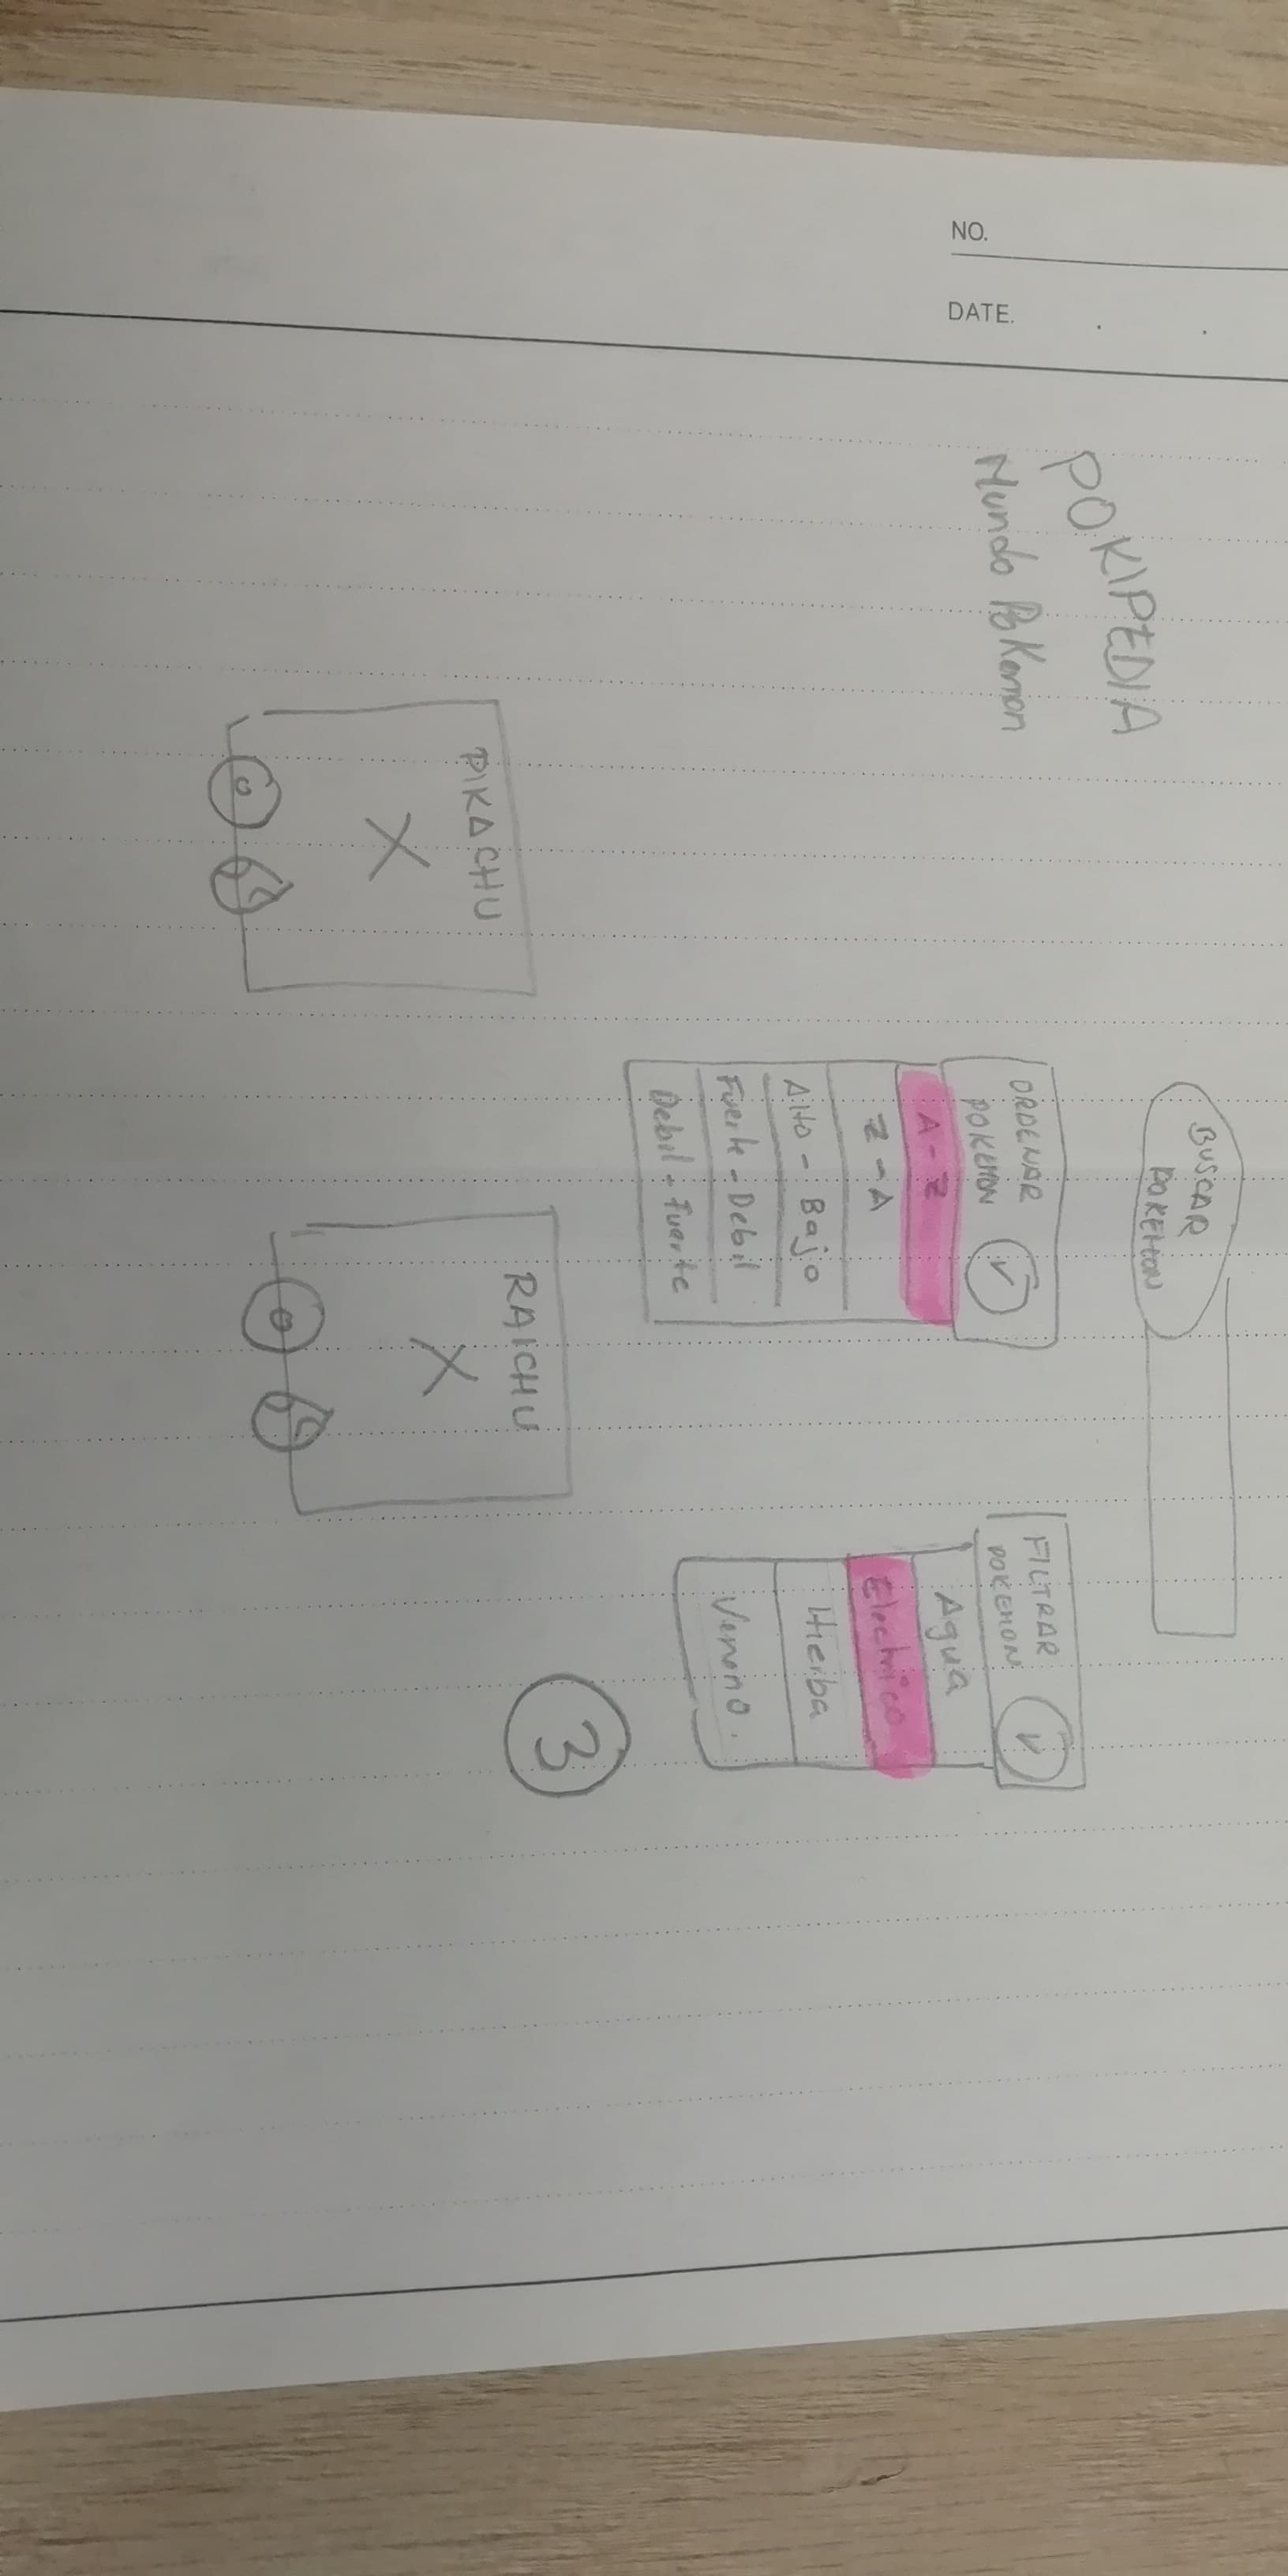 NO.
DATE.
POKIPEDIA
Mundo Pokemon
BUSCAR
POKEMON
ORDENAR
POKEMON
A - Z
Z - A
Alto - Bajo
Fuerte - Debil
Debil - Fuerte
FILTRAR
POKEMON
Agua
Electrico
Hierba
Veneno.
3
PIKACHU
X
RAICHU
X